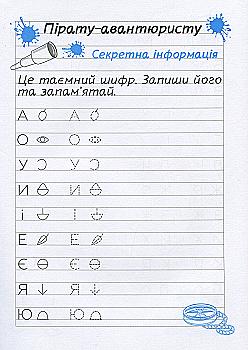 Пірату-авантюристу
Секретна інформація
Це таємний шифр. Запиши його
та запам'ятай.
А
О О
У У
И И
і і
Е Е
Є Є
Я Я
Ю Ю